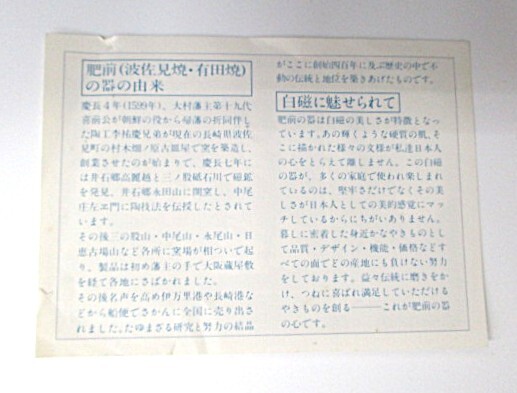 肥前(波佐見焼・有田焼)
の器の由来
慶長4年(1599年)、大村藩主第十九代
喜前公が朝鮮の役から帰藩の折同伴し
た陶工李祐慶兄弟が現在の長崎県波佐
見町の村木畑ノ原古皿屋で窯を築造し、
創業させたのが始まりで、慶長七年に
は井石郷高麗越と三ノ股砥石川で磁鉱
を発見、井石郷永田山に開窯し、中尾
庄左エ門に陶技法を伝授したとされて
います。
その後三の股山・中尾山・永尾山・日
恵古場山など各所に窯場が相ついで起
り、製品は初め藩主の手で大阪蔵屋敷
を経て各地にさばかれました。
その後名声を高め伊万里港や長崎港な
どから船便でさかんに全国に売り出さ
れました。たゆまざる研究と努力の結晶
がここに創始四百年に及ぶ歴史の中で不
動の伝統と地位を築きあげたものです。
白磁に魅せられて
肥前の器は白磁の美しさが特徴となっ
ています。あの輝くような硬質の肌、そ
こに描かれた様々の文様が私達日本人
の心をとらえて離しません。この白磁
の器が、多くの家庭で使われ楽しまれ
ているのは、堅牢さだけでなくその美
しさが日本人としての美的感覚にマッ
チしているからにちがいありません。
暮しに密着した身近かなやきものとし
て品質・デザイン・機能・価格などす
べての面でどの産地にも負けない努力
をしております。益々伝統に磨きをか
け、つねに喜ばれ満足していただける
やきものを創る───これが肥前の器
の心です。